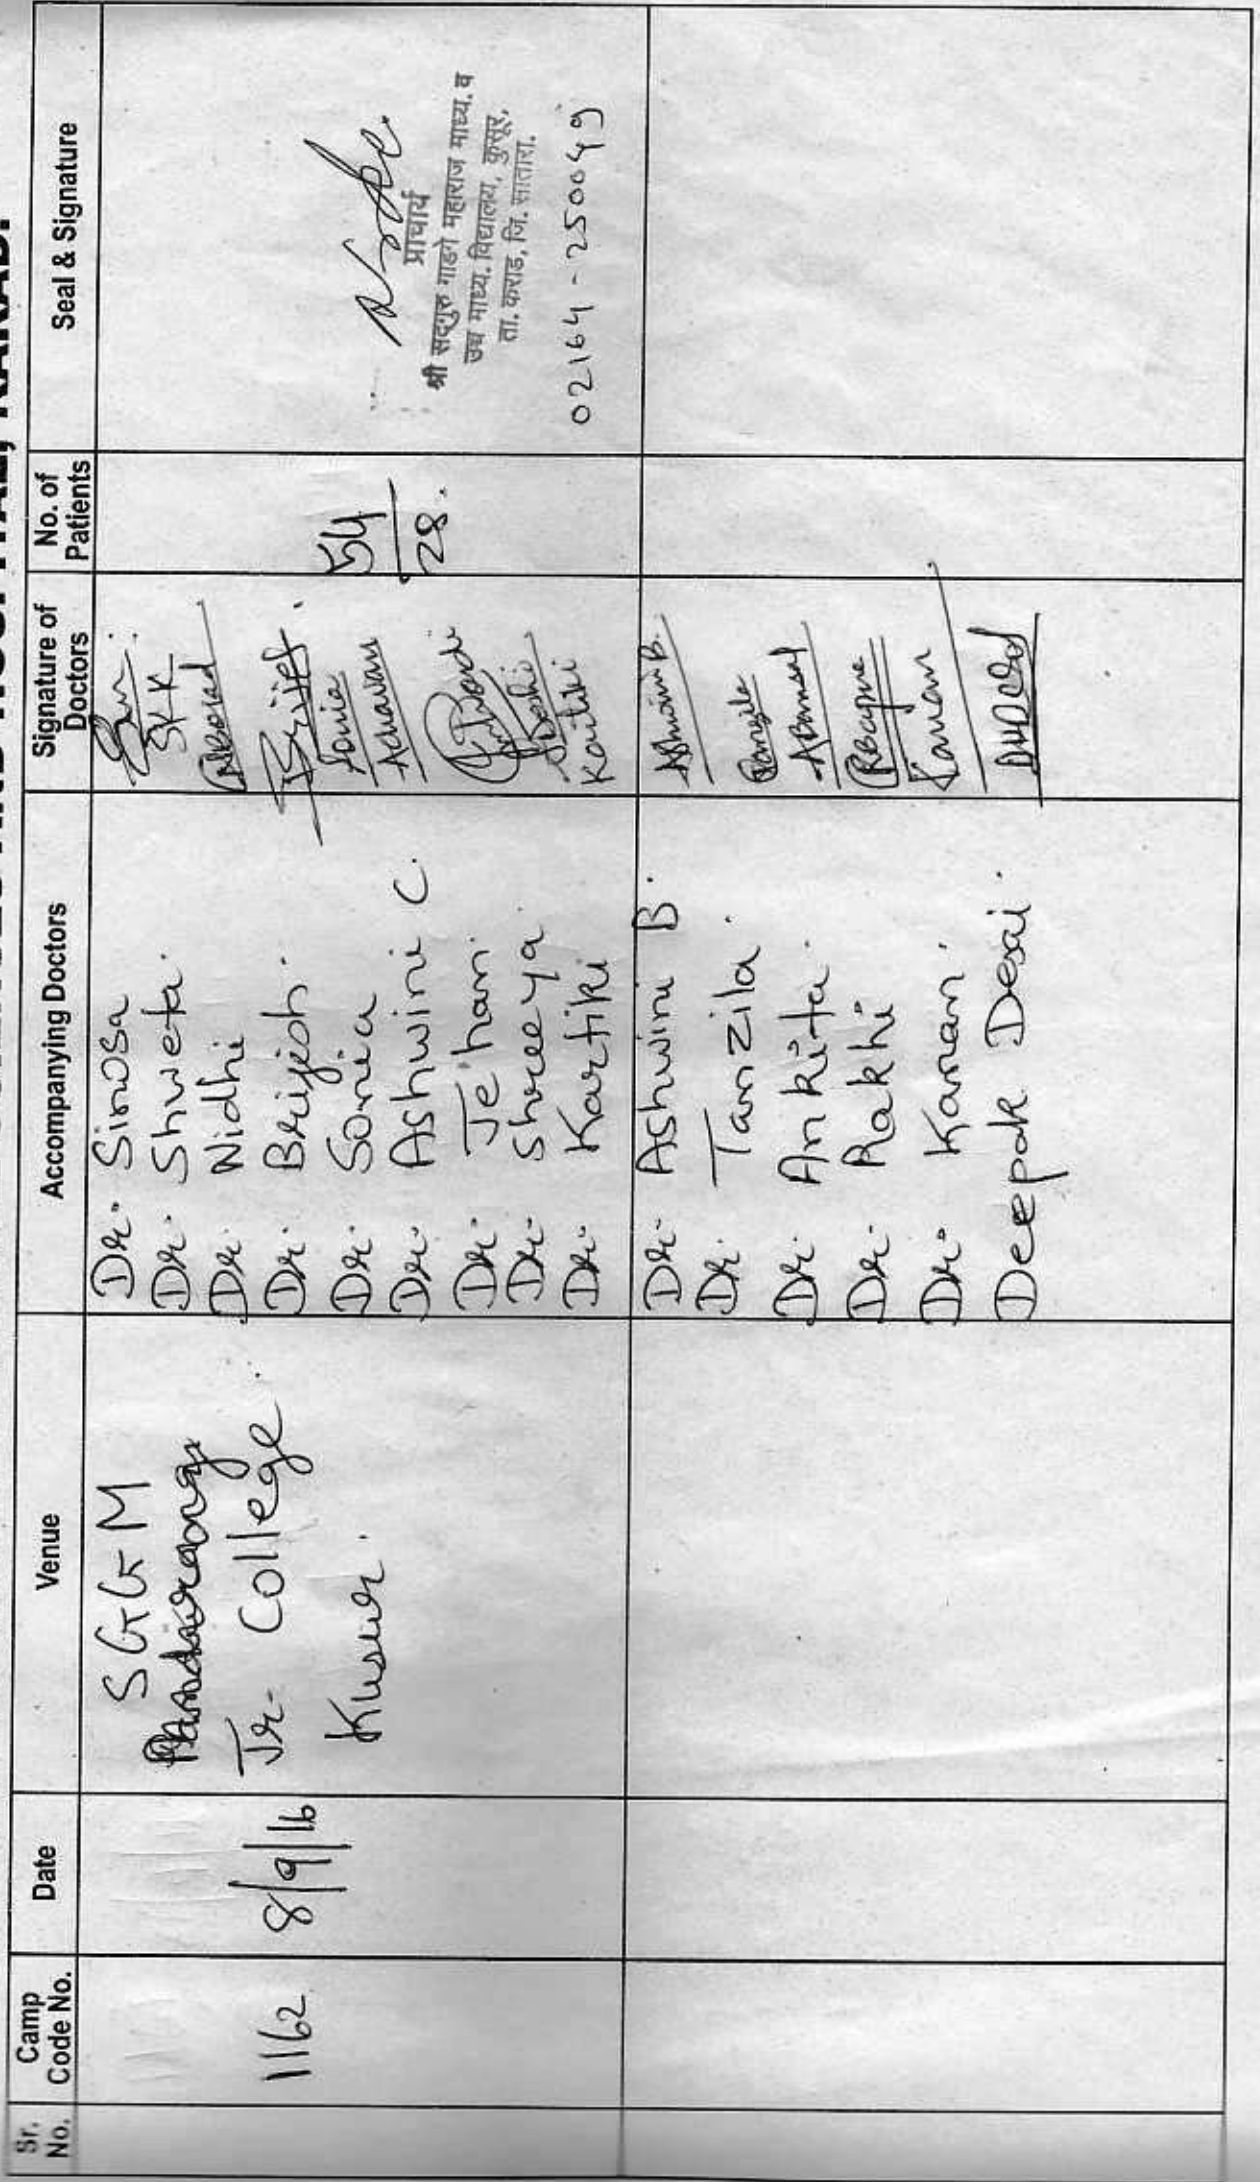 HOSPITAL, KARAD.
Sr. No.
Camp Code No.
Date
Venue
Accompanying Doctors
Signature of Doctors
No. of Patients
Seal & Signature
1162
8/9/16
S G G M
Jr. College.
Kusur.
Dr. Sinosa
Dr. Shweta.
Dr. Nidhi
Dr. Brijesh.
Dr. Sonia
Dr. Ashwini C.
Dr. Jehan.
Dr. Shreeya.
Dr. Kartiki
SKK
Sonia
Kartiki
54
28.
प्राचार्य
श्री सद्गुरु गाडगे महाराज माध्य. व
उच्च माध्य. विद्यालय, कुसूर,
ता. कराड, जि. सातारा.
02164-250049
Dr. Ashwini B.
Dr. Tanzila.
Dr. Ankita.
Dr. Rakhi
Dr. Kanan.
Deepak Desai.
Ashwini B.
Tanzila
ABansal
Kanan